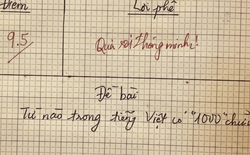 Điểm Lời phê
9.5 Quá sức thông minh!
Đề bài
Từ nào trong tiếng Việt có "1000" chữ